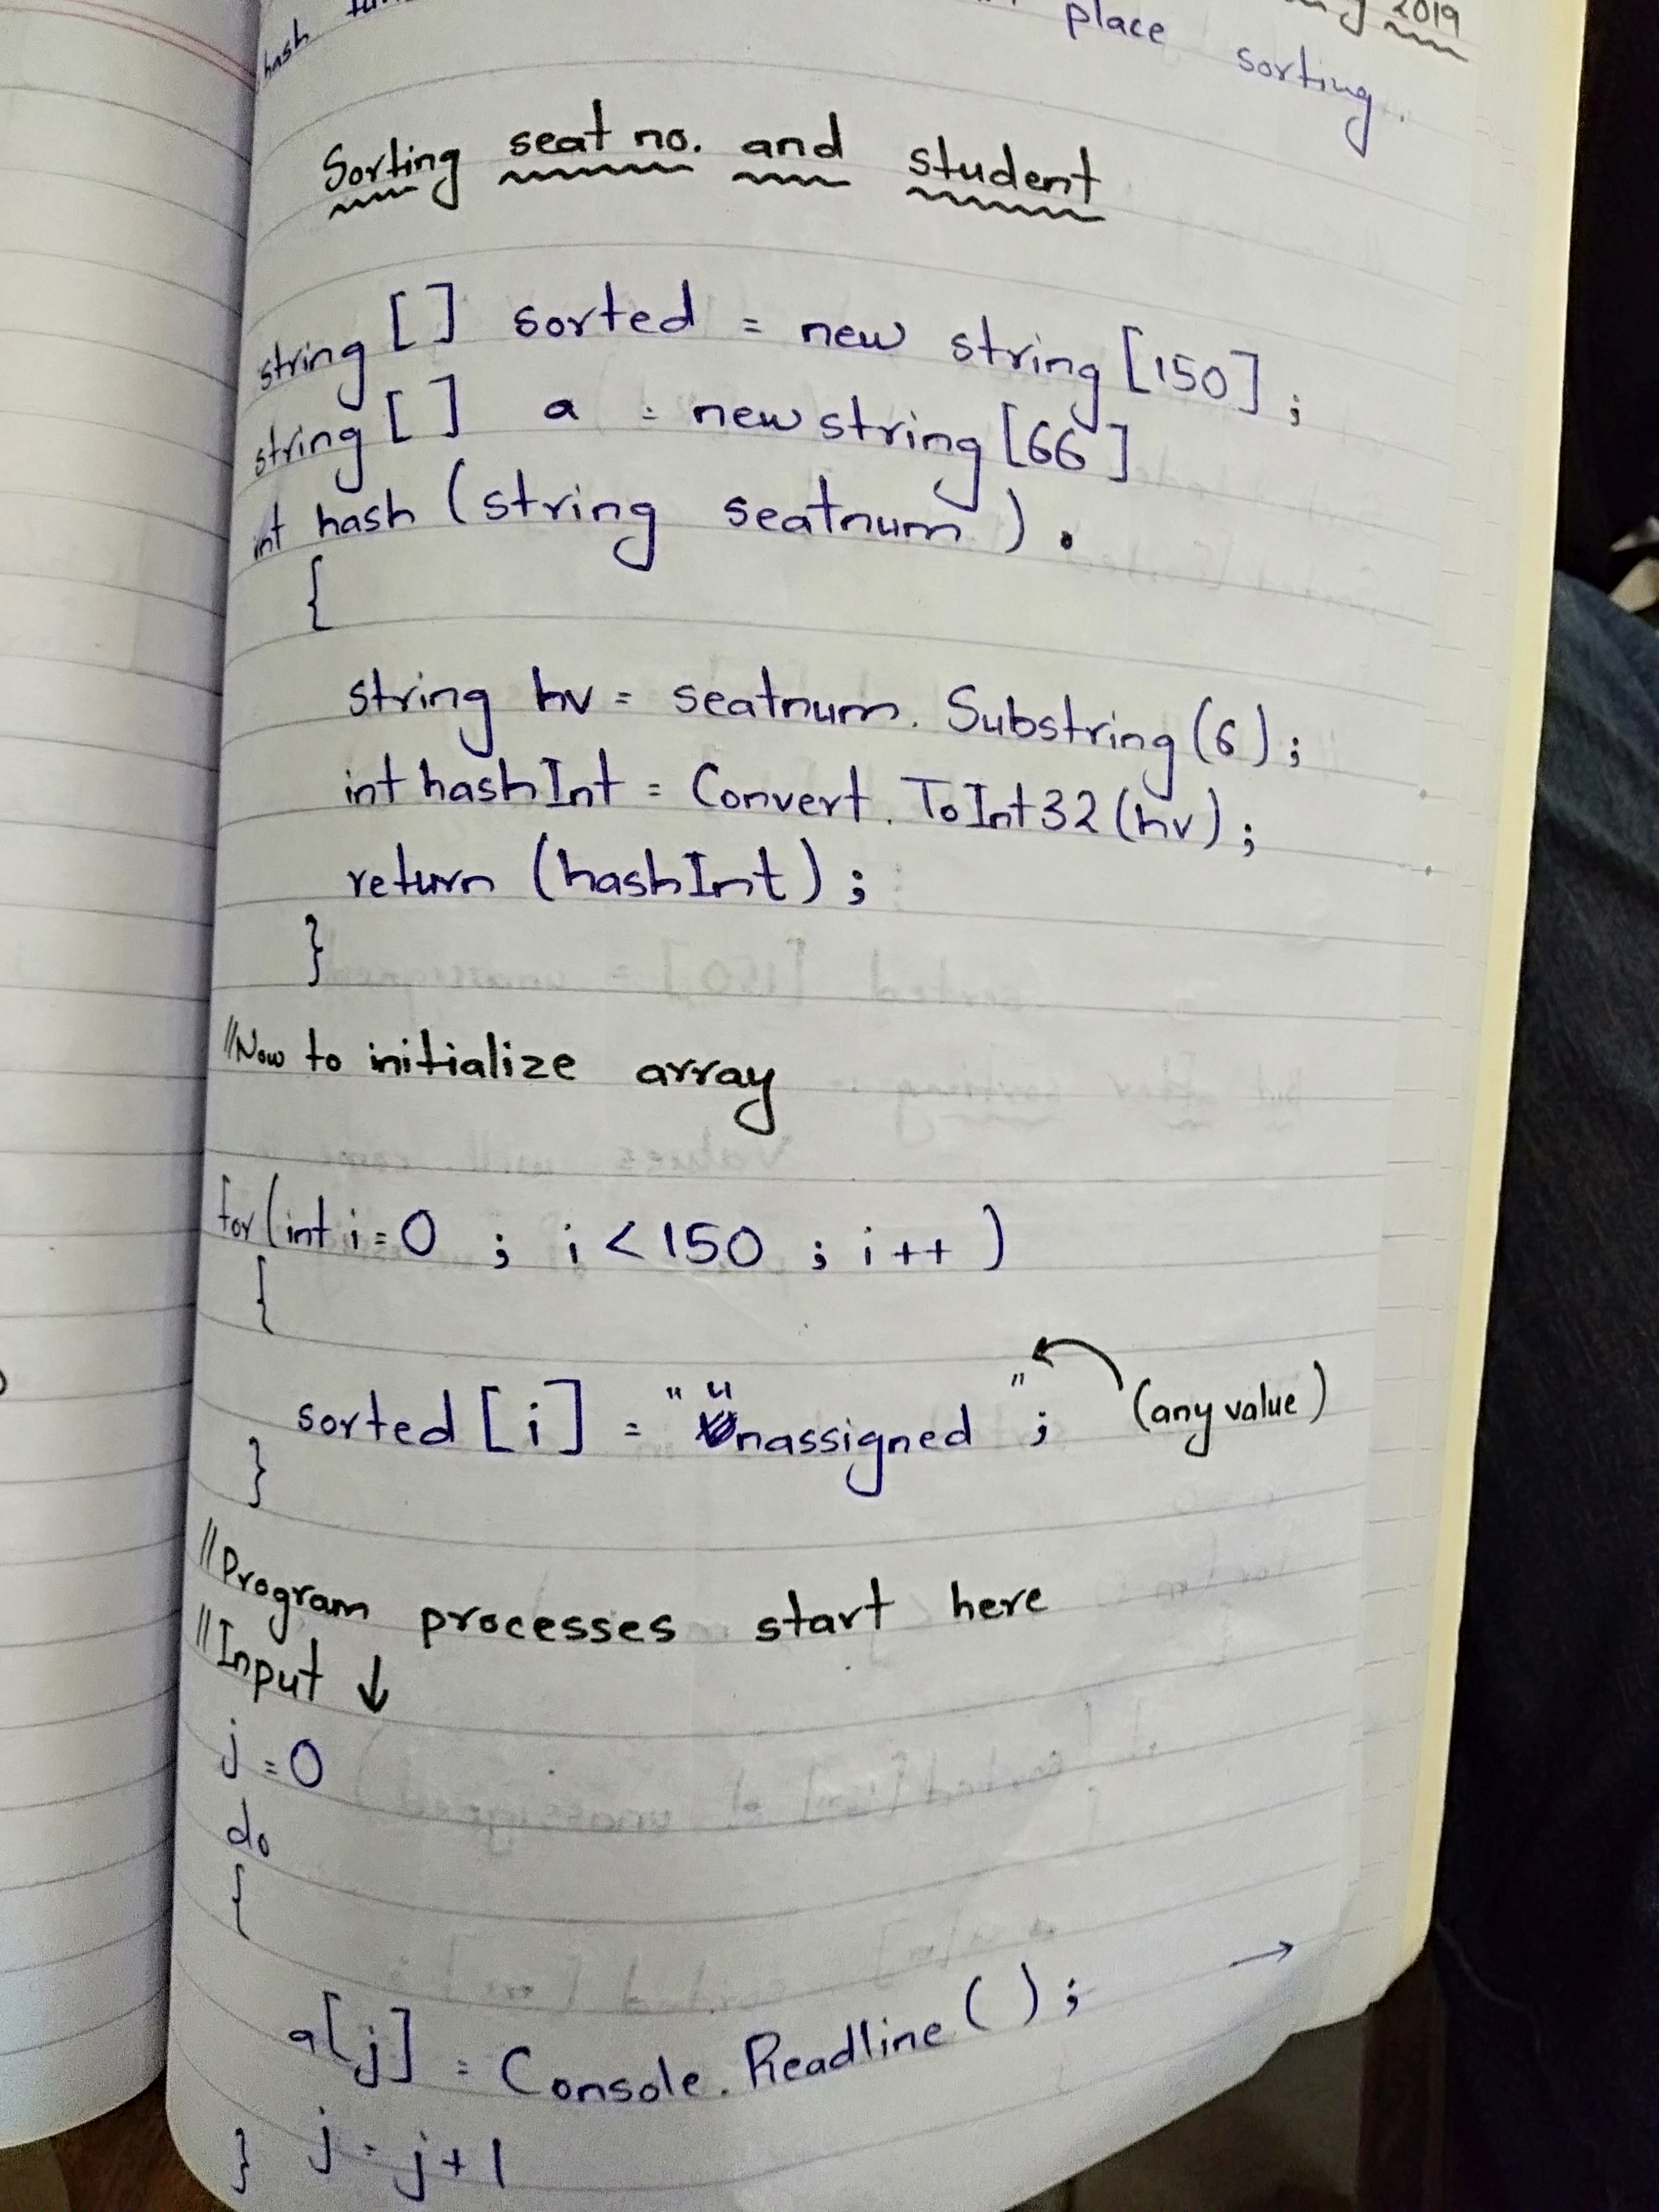 2019
hash
place sorting.
Sorting seat no. and student
string [ ] sorted = new string [150] ;
string [ ] a = new string [66]
int hash (string seatnum ) .
{
string hv = seatnum. Substring (6) ;
int hashInt = Convert. ToInt32 (hv) ;
return (hashInt) ;
}
//Now to initialize array
for (int i = 0 ; i < 150 ; i ++ )
{
sorted [ i ] = "Unassigned " ; (any value)
}
//Program processes start here
//Input ↓
j = 0
do
{
a[j] = Console. Readline ( ) ; →
} j = j + 1